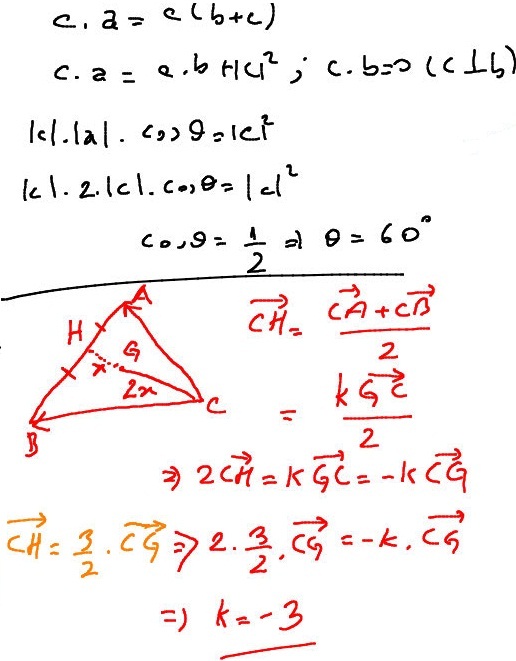 c . a = c (b+c)
c . a = c . b + |c|² ; c . b = 0 (c ⊥ b)
|c| . |a| . cos θ = |c|²
|c| . 2 . |c| . cos θ = |c|²
cos θ = 1/2 ⇒ θ = 60°
A
H
G
x
2x
C
B
CH⃗ = (CA⃗ + CB⃗)/2
= k GC⃗/2
⇒ 2CH⃗ = k GC⃗ = -k CG⃗
CH⃗ = 3/2 . CG⃗ ⇒ 2 . 3/2 . CG⃗ = -k . CG⃗
⇒ k = -3